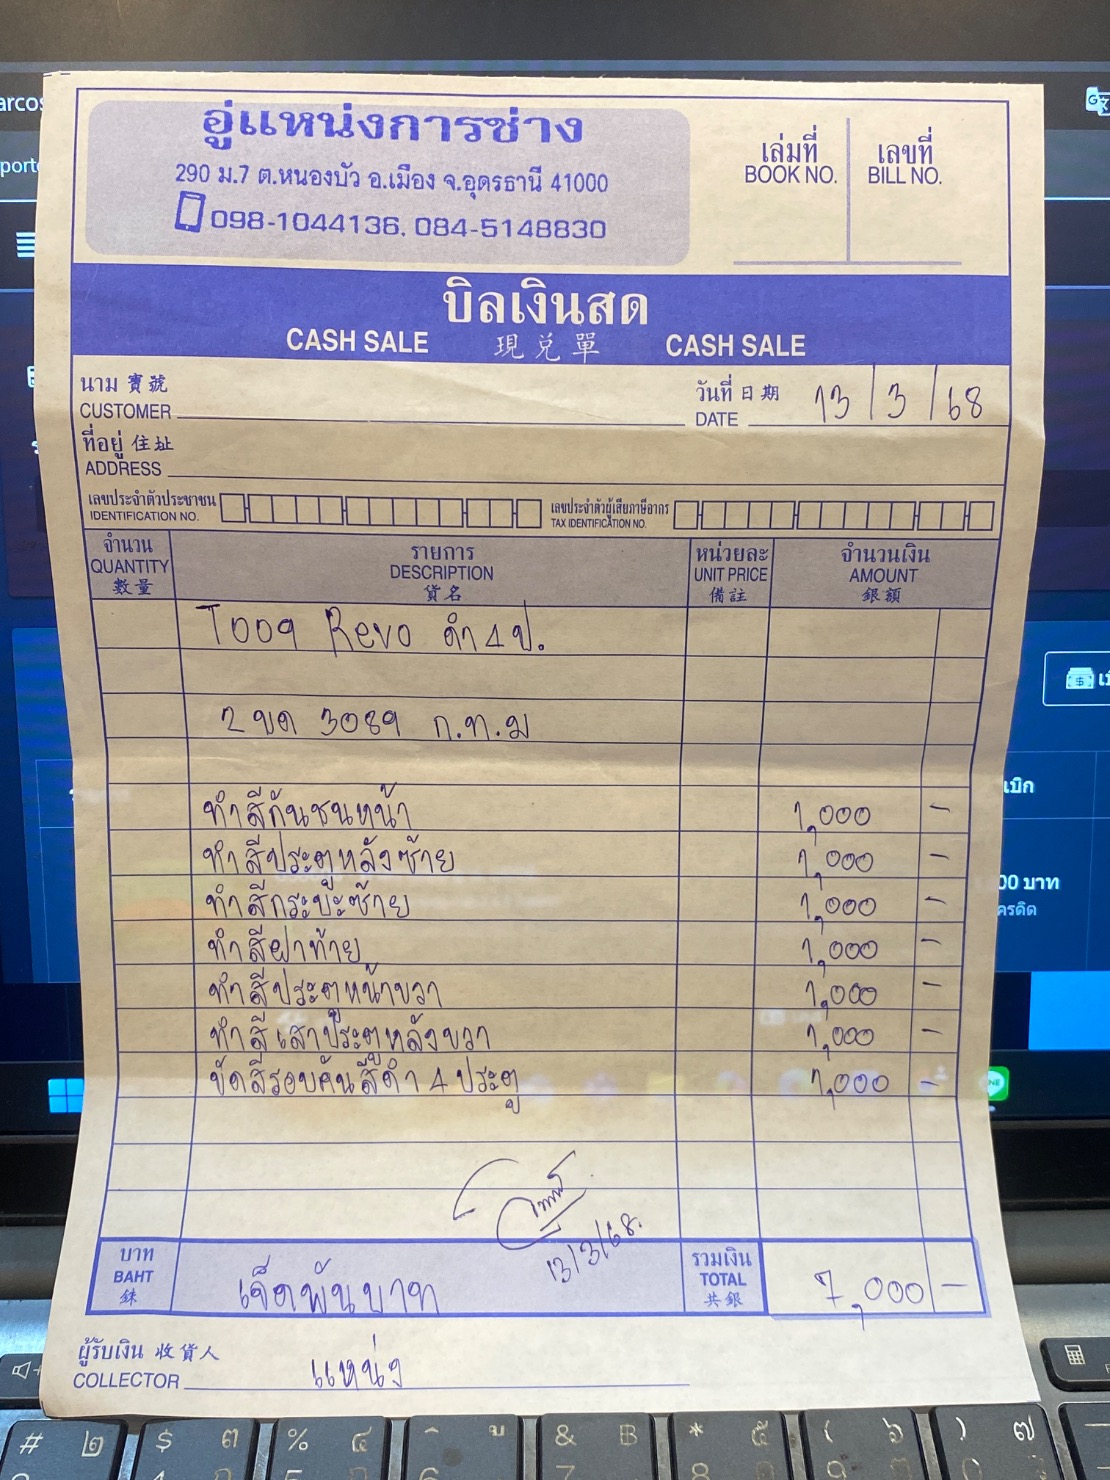 อู่แหน่งการช่าง
290 ม.7 ต.หนองบัว อ.เมือง จ.อุดรธานี 41000
098-1044136, 084-5148830
เล่มที่
BOOK NO.
เลขที่
BILL NO.
บิลเงินสด
CASH SALE 現兌單 CASH SALE
นาม 寶號
CUSTOMER
วันที่ 日期
DATE
13/3/68
ที่อยู่ 住址
ADDRESS
เลขประจำตัวประชาชน
IDENTIFICATION NO.
เลขประจำตัวผู้เสียภาษีอากร
TAX IDENTIFICATION NO.
จำนวน
QUANTITY
數量
รายการ
DESCRIPTION
貨名
หน่วยละ
UNIT PRICE
備註
จำนวนเงิน
AMOUNT
銀額
T009 Revo ดำ 4 ป.
2 ขด 3089 ก.ท.ม
ทำสีกันชนหน้า 1,000 -
ทำสีประตูหลังซ้าย 1,000 -
ทำสีกระบะซ้าย 1,000 -
ทำสีฝาท้าย 1,000 -
ทำสีประตูหน้าขวา 1,000 -
ทำสีเสาประตูหลังขวา 1,000 -
ขัดสีรอบคันสีดำ 4 ประตู 1,000 -
13/3/68.
บาท
BAHT
銖
เจ็ดพันบาท
รวมเงิน
TOTAL
共銀
7,000 -
ผู้รับเงิน 收貨人
COLLECTOR
แหน่ง
arcos
porte
เบิก
00 บาท
ครดิต
# ๒
$ ๓
% ๔
& ฿
* ๕
( ๖
) ๗